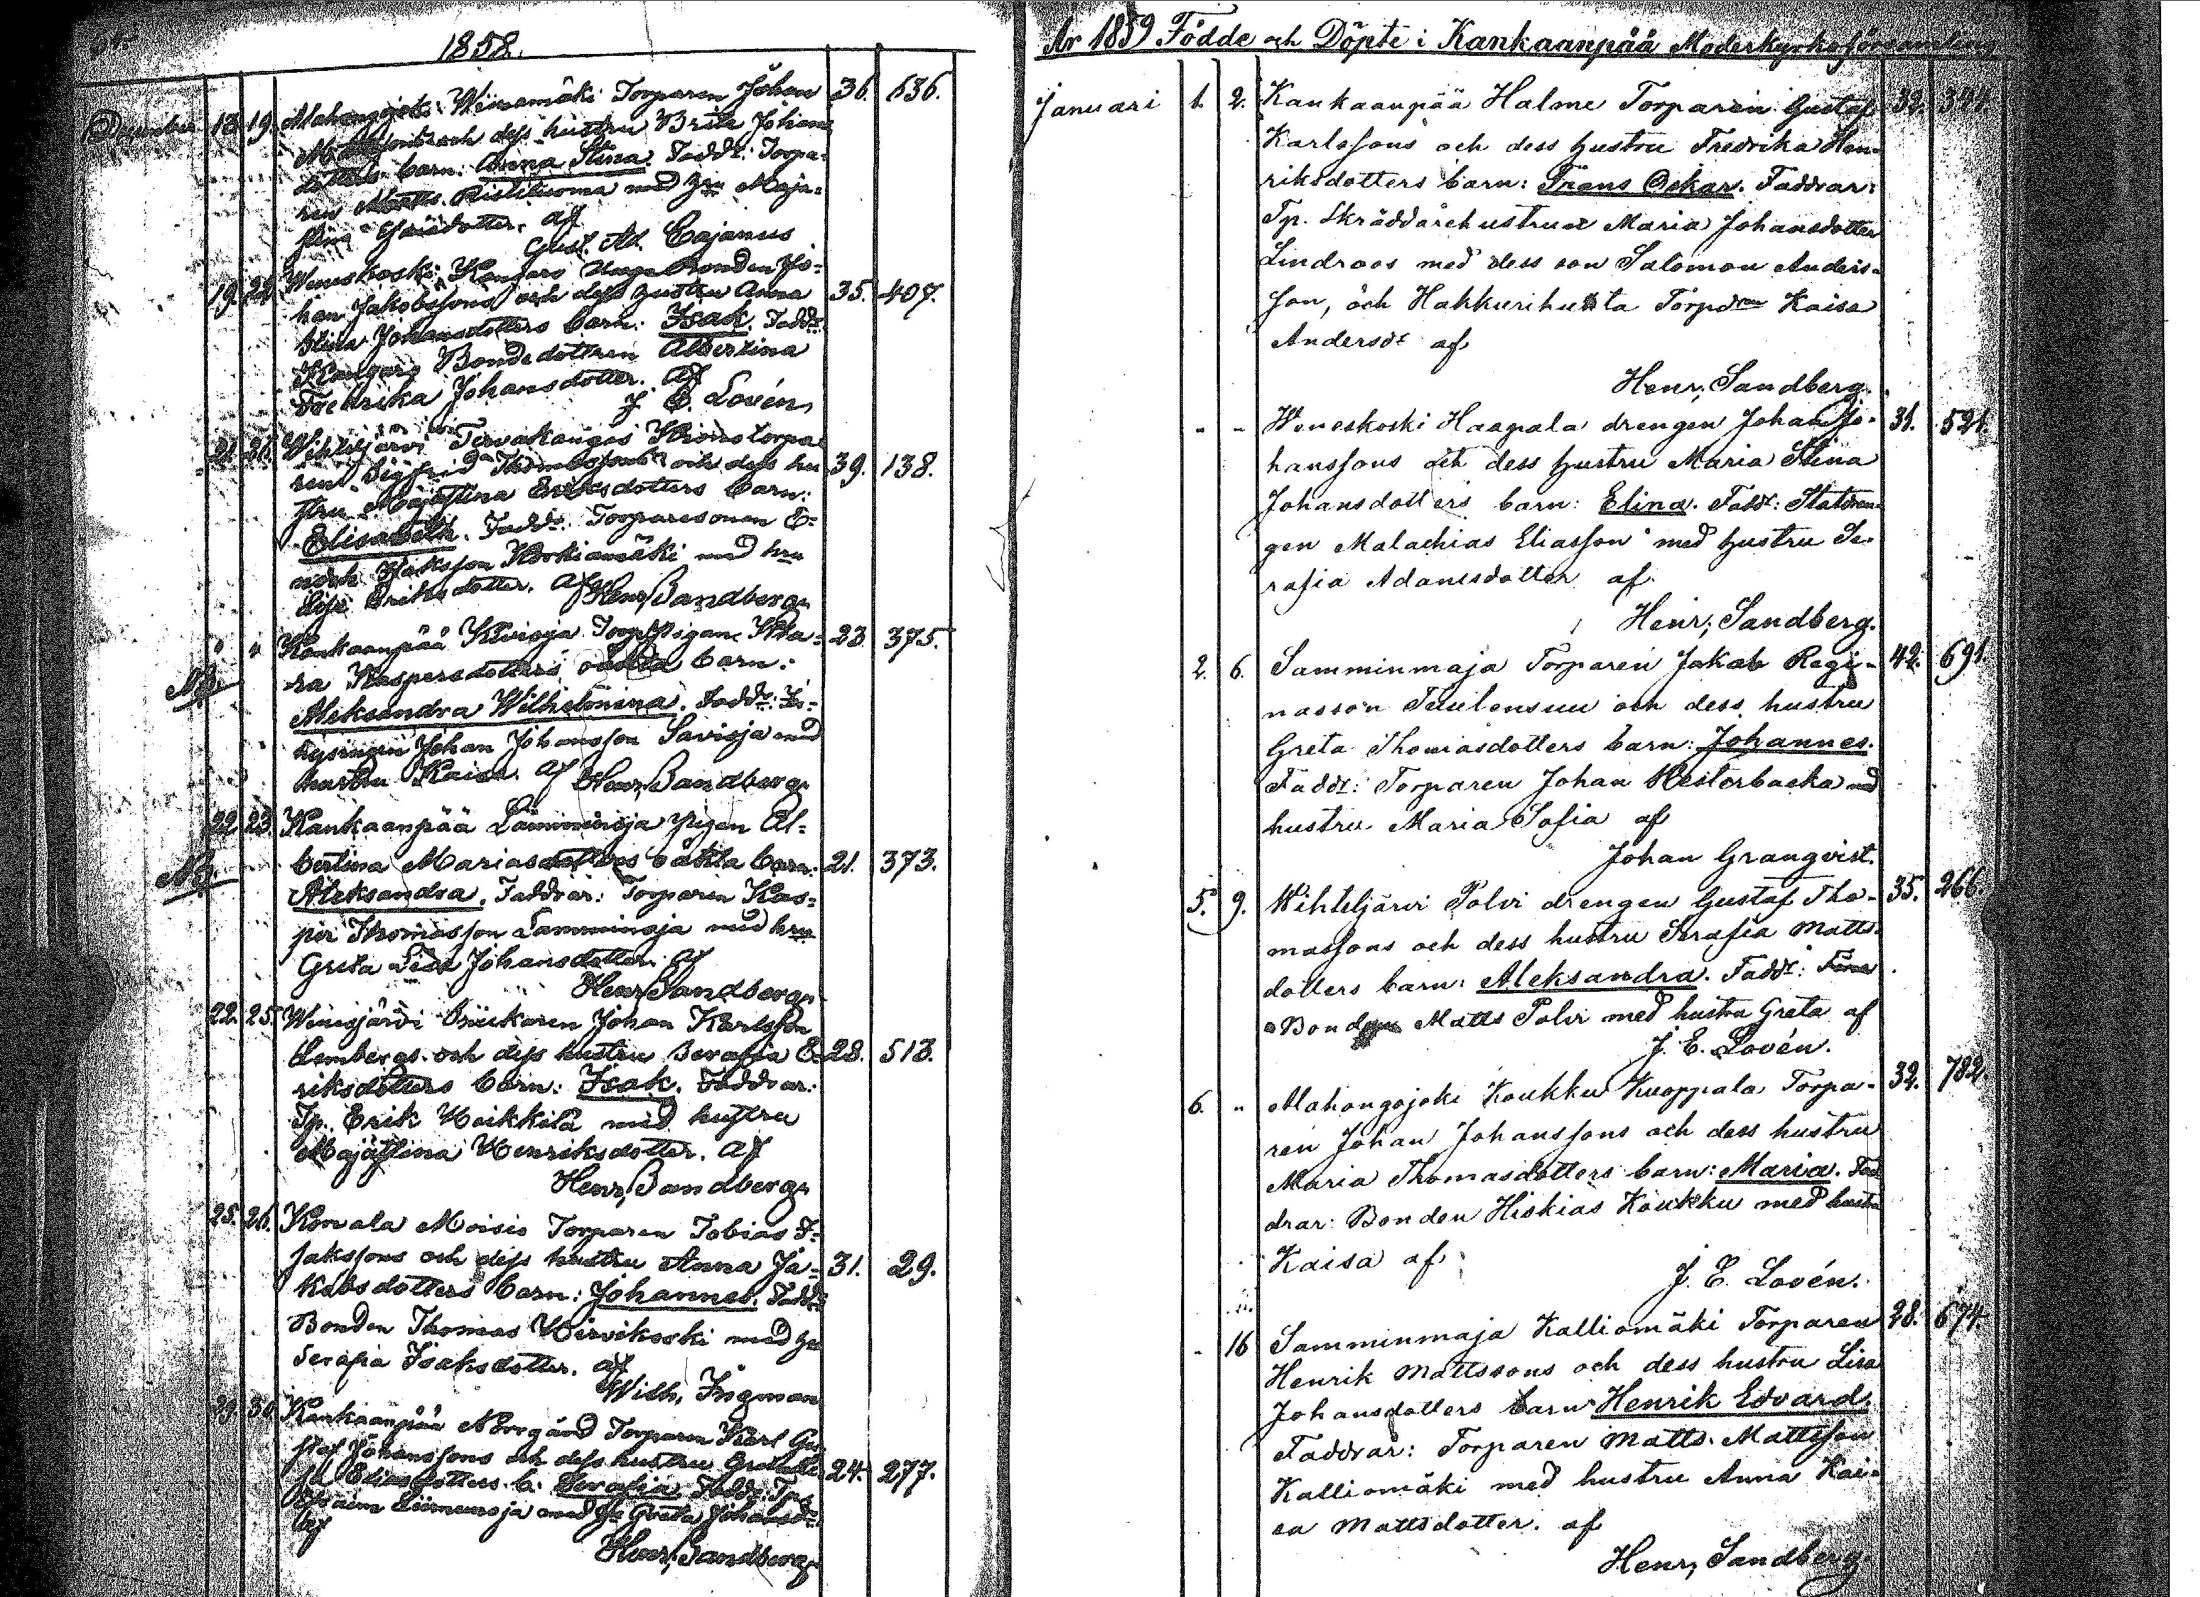 1858.
December 18. 19. Mahongojoki Wiinamäki Torparen Johan 36. 636.
och dess hustru Brita Johans
dotters barn: Anna Stina. Faddr: Torpa-
ren Matts Ristiluoma med hru Maja-
stina Esaiædotter. af
Gust. Ad. Cajanus
19. 22. Weneskoski Kangars Bonden Jo-
han Jakobssons och dess hustru Anna 35. 407.
Stina Johansdotters barn: Isak. Faddr
Kangars Bondedottren Albertina
Fredrika Johansdotter. af
J. E. Lovén
21. 21. Wihteljärvi Tervakangas Kronotorpa
ren Sigfrid Thomassons och dess hu 39. 138.
stru Majastina Eriksdotters barn:
Elisabeth. Faddr. Torparesonen
Isaksson med hru
Lisa Eriksdotter. af Henr; Sandberg.
" " Kankaanpää Kivioja Torp Pigan 23. 375.
NB. ra Kaspersdotters oäkta barn:
Aleksandra Wilhelmina. Faddr: In-
hysingen Johan Johansson Savioja med
hustru Kaisa. af Henr; Sandberg.
22. 23. Kankaanpää Lamminoja pigan Al-
NB. bertina Mariasdotters oäkta barn: 21. 373.
Aleksandra. Faddrar: Torparen Kas-
per Thomasson Lamminoja med hru
Greta Lisa Johansdotter. af
Henr; Sandberg.
22. 25. Wenesjärvi Johan Karlsson
Lembergs och dess hustru Serafia E- 28. 513.
riksdotters barn: Isak. Faddrar:
Tp. Erik Heikkilä med hustru
Majastina Henriksdotter. af
Henr; Sandberg.
25. 26. Torparen Tobias I-
sakssons och dess hustru Anna Ja- 31. 29.
kobsdotters barn: Johannes. Faddr
Bonden Thomas med hu
Serafia Isaksdotter. af
Wilh. Ingman
29. 30. Kankaanpää Norrgård Torparen Karl Gu-
staf Johanssons och dess hustru 24. 277.
Eliasdotters b. Serafia. Faddr: Tp
Efraim med Greta Johansdr
af
Henr; Sandberg.
År 1859 Födde och Döpte i Kankaanpää Moderkyrkoförsamling
Januari 1. 2. Kankaanpää Halme Torparen Gustaf 32. 344.
Karlssons och dess hustru Fredrika Hen-
riksdotters barn: Frans Oskar. Faddrar:
Tp. Skräddarehustrun Maria Johansdotter
Lindroos med dess son Salomon Anders-
son, och Hakkurihuhta Torpdran Kaisa
Andersdr af
Henr; Sandberg.
- - Weneskoski Haapala drengen Johan Jo- 31. 521.
hanssons och dess hustru Maria Stina
Johansdotters barn: Elina. Faddr: Statdren-
gen Malachias Eliasson med hustru Se-
rafia Adamsdotter af
Henr; Sandberg.
2. 6. Samminmaja Torparen Jakob Regi- 42. 691.
nasson Tuulensuu och dess hustru
Greta Thomasdotters barn: Johannes.
Faddr: Torparen Johan Westerbacka med
hustru Maria Sofia af
Johan Granqvist.
5. 9. Wihteljärvi Polvi drengen Gustaf Tho- 35. 266.
massons och dess hustru Serafia Matts-
dotters barn: Aleksandra. Faddr:
Bonden Matts Polvi med hustru Greta af
J. E. Lovén.
6. " Mahongojoki Koukku Kuoppala Torpa- 32. 782.
ren Johan Johanssons och dess hustru
Maria Thomasdotters barn: Maria. Fad
drar: Bonden Hiskias Koukku med hustru
Kaisa af
J. E. Lovén.
- 16 Samminmaja Kalliomäki Torparen 28. 674.
Henrik Mattssons och dess hustru Lisa
Johansdotters barn Henrik Edvard.
Faddrar: Torparen Matts Mattsson
Kalliomäki med hustru Anna Kai-
sa Mattsdotter. af
Henr; Sandberg.